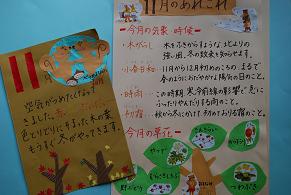 11
空気がつめたくなって
きました。赤
色とりどりに染まった木の葉
もうすぐ冬がやってきます。
11月のあれこれ
―今月の気象・時候―
・木がらし ― 木をふきからすような、北よりの
強い風。冬の放来を知らせます。
・小春日和 ― 11月から12月初めのころの、まるで
春のようにおだやかな陽気の日のこと。
・時雨 ― この時期、寒冷前線の影響で急に
ふったりやんだりする雨のこと。
・初霜 ― 秋から冬にかけて初めておりる霜のこと。
―今月の草花―
やつで
さざんか
つわぶき